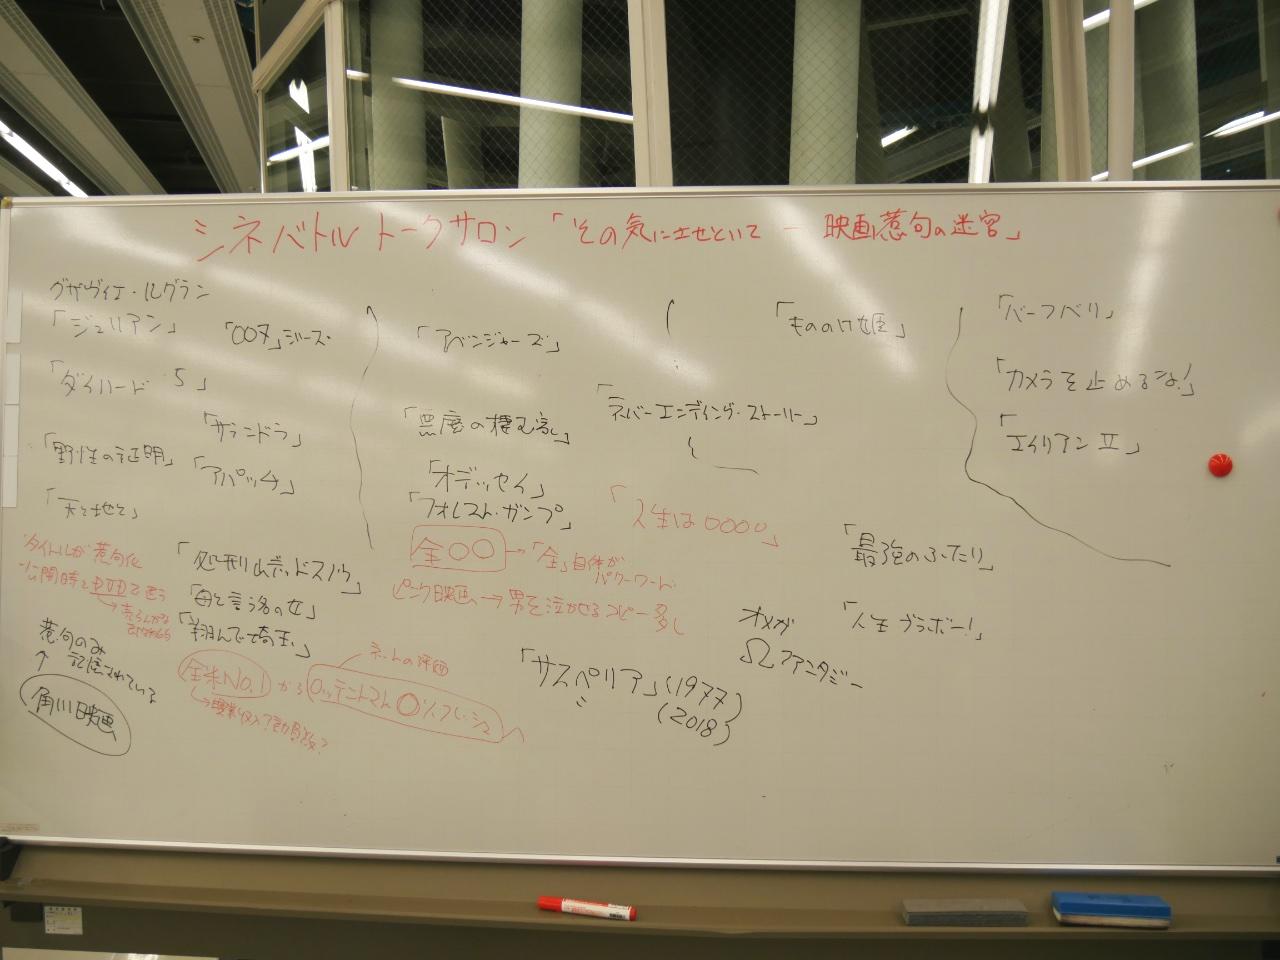 シネバトルトークサロン「その気にさせといて ー 映画惹句の迷宮」
グザヴィエ・ルグラン
「ジュリアン」
「007」シリーズ
「ダイハード 5」
「サランドラ」
「野性の証明」
「アパッチ」
「天と地と」
タイトルが惹句化
公開時とDVDで違う
「処刑山デッドスノウ」
「母と言う名の女」
「翔んで埼玉」
惹句のみ
記憶されている
↑
角川映画
全米No.1 から ロッテントマト〇%フレッシュ へ
ネットの評価
「アベンジャーズ」
「悪魔の棲む家」
「オデッセイ」
「フォレスト・ガンプ」
全〇〇→「全」自体が
パワーワード
ピンク映画→男を泣かせるコピー多し
「ネバーエンディング・ストーリー」
「人生は〇〇〇〇」
「サスペリア」(1977)
(2018)
「もののけ姫」
「最強のふたり」
「人生ブラボー!」
オメガ
Ωファンタジー
「バーフバリ」
「カメラを止めるな!」
「エイリアンⅡ」